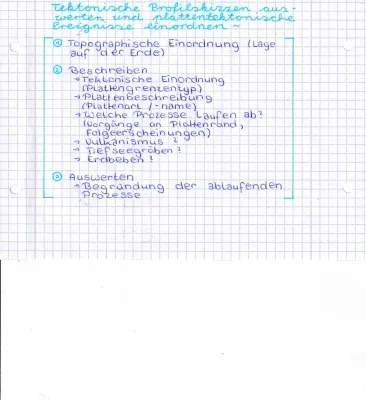 Tektonische Profilskizzen aus-
werten und plattentektonische
Ereignisse einordnen ~
① Topographische Einordnung (Lage
auf der Erde)
② Beschreiben
→ Tektonische Einordnung
(Plattengrenzentyp)
→ Plattenbeschreibung
(Plattenart /-name)
→ Welche Prozesse laufen ab?
(Vorgänge an Plattenrand,
Folgeerscheinungen)
→ Vulkanismus?
→ Tiefseegräben?
→ Erdbeben?
③ Auswerten
→ Begründung der ablaufenden
Prozesse